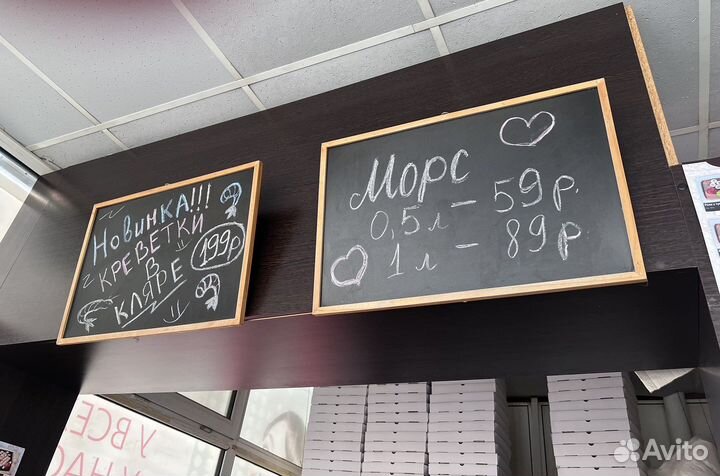 Новинка!!!
КРЕВЕТКИ
В
КЛЯРЕ
199р
Морс
0,5л – 59р.
1л – 89р.
У ВСЕ
Avito